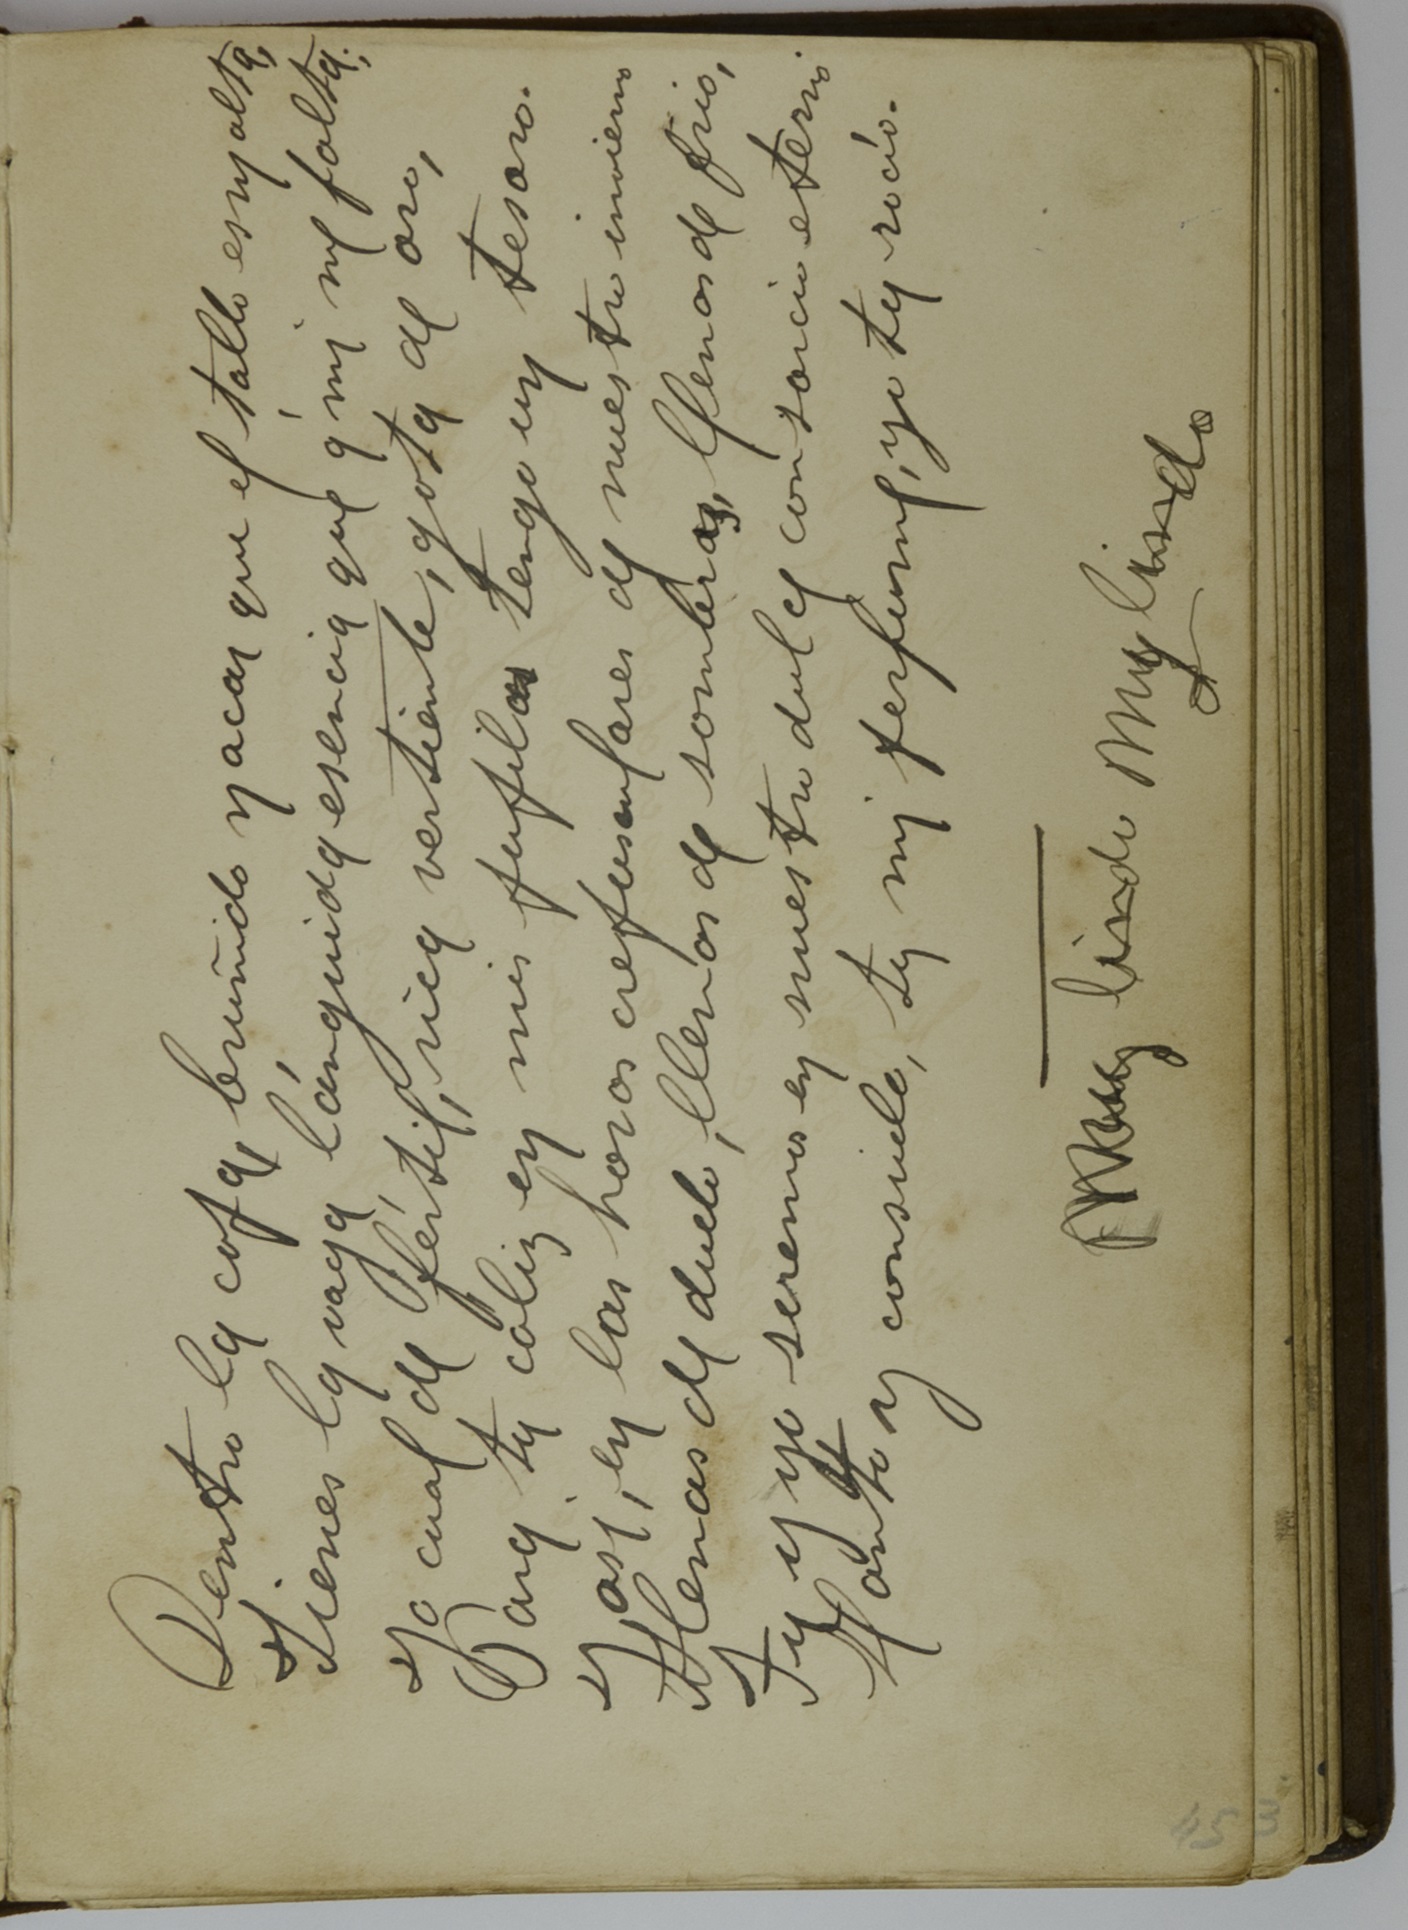 Dentro la copa bruñido nacar que el tallo esmalta,
Tienes la vaga lánguida esencia que á mi me falta;
Yo cual de fértil, rica vertiente, gota de oro,
Para tu cáliz en mis pupilas tengo un tesoro.
Y así, en las horas crepusculares de nuestro invierno
Llenas de duelo, llenas de sombras, llenas de frio,
Tu y yo seremos en nuestro dulce consorcio eterno
Llanto y consuelo, tu mi perfume, yo tu rocío.
Muy lindo Muy lindo
45
3